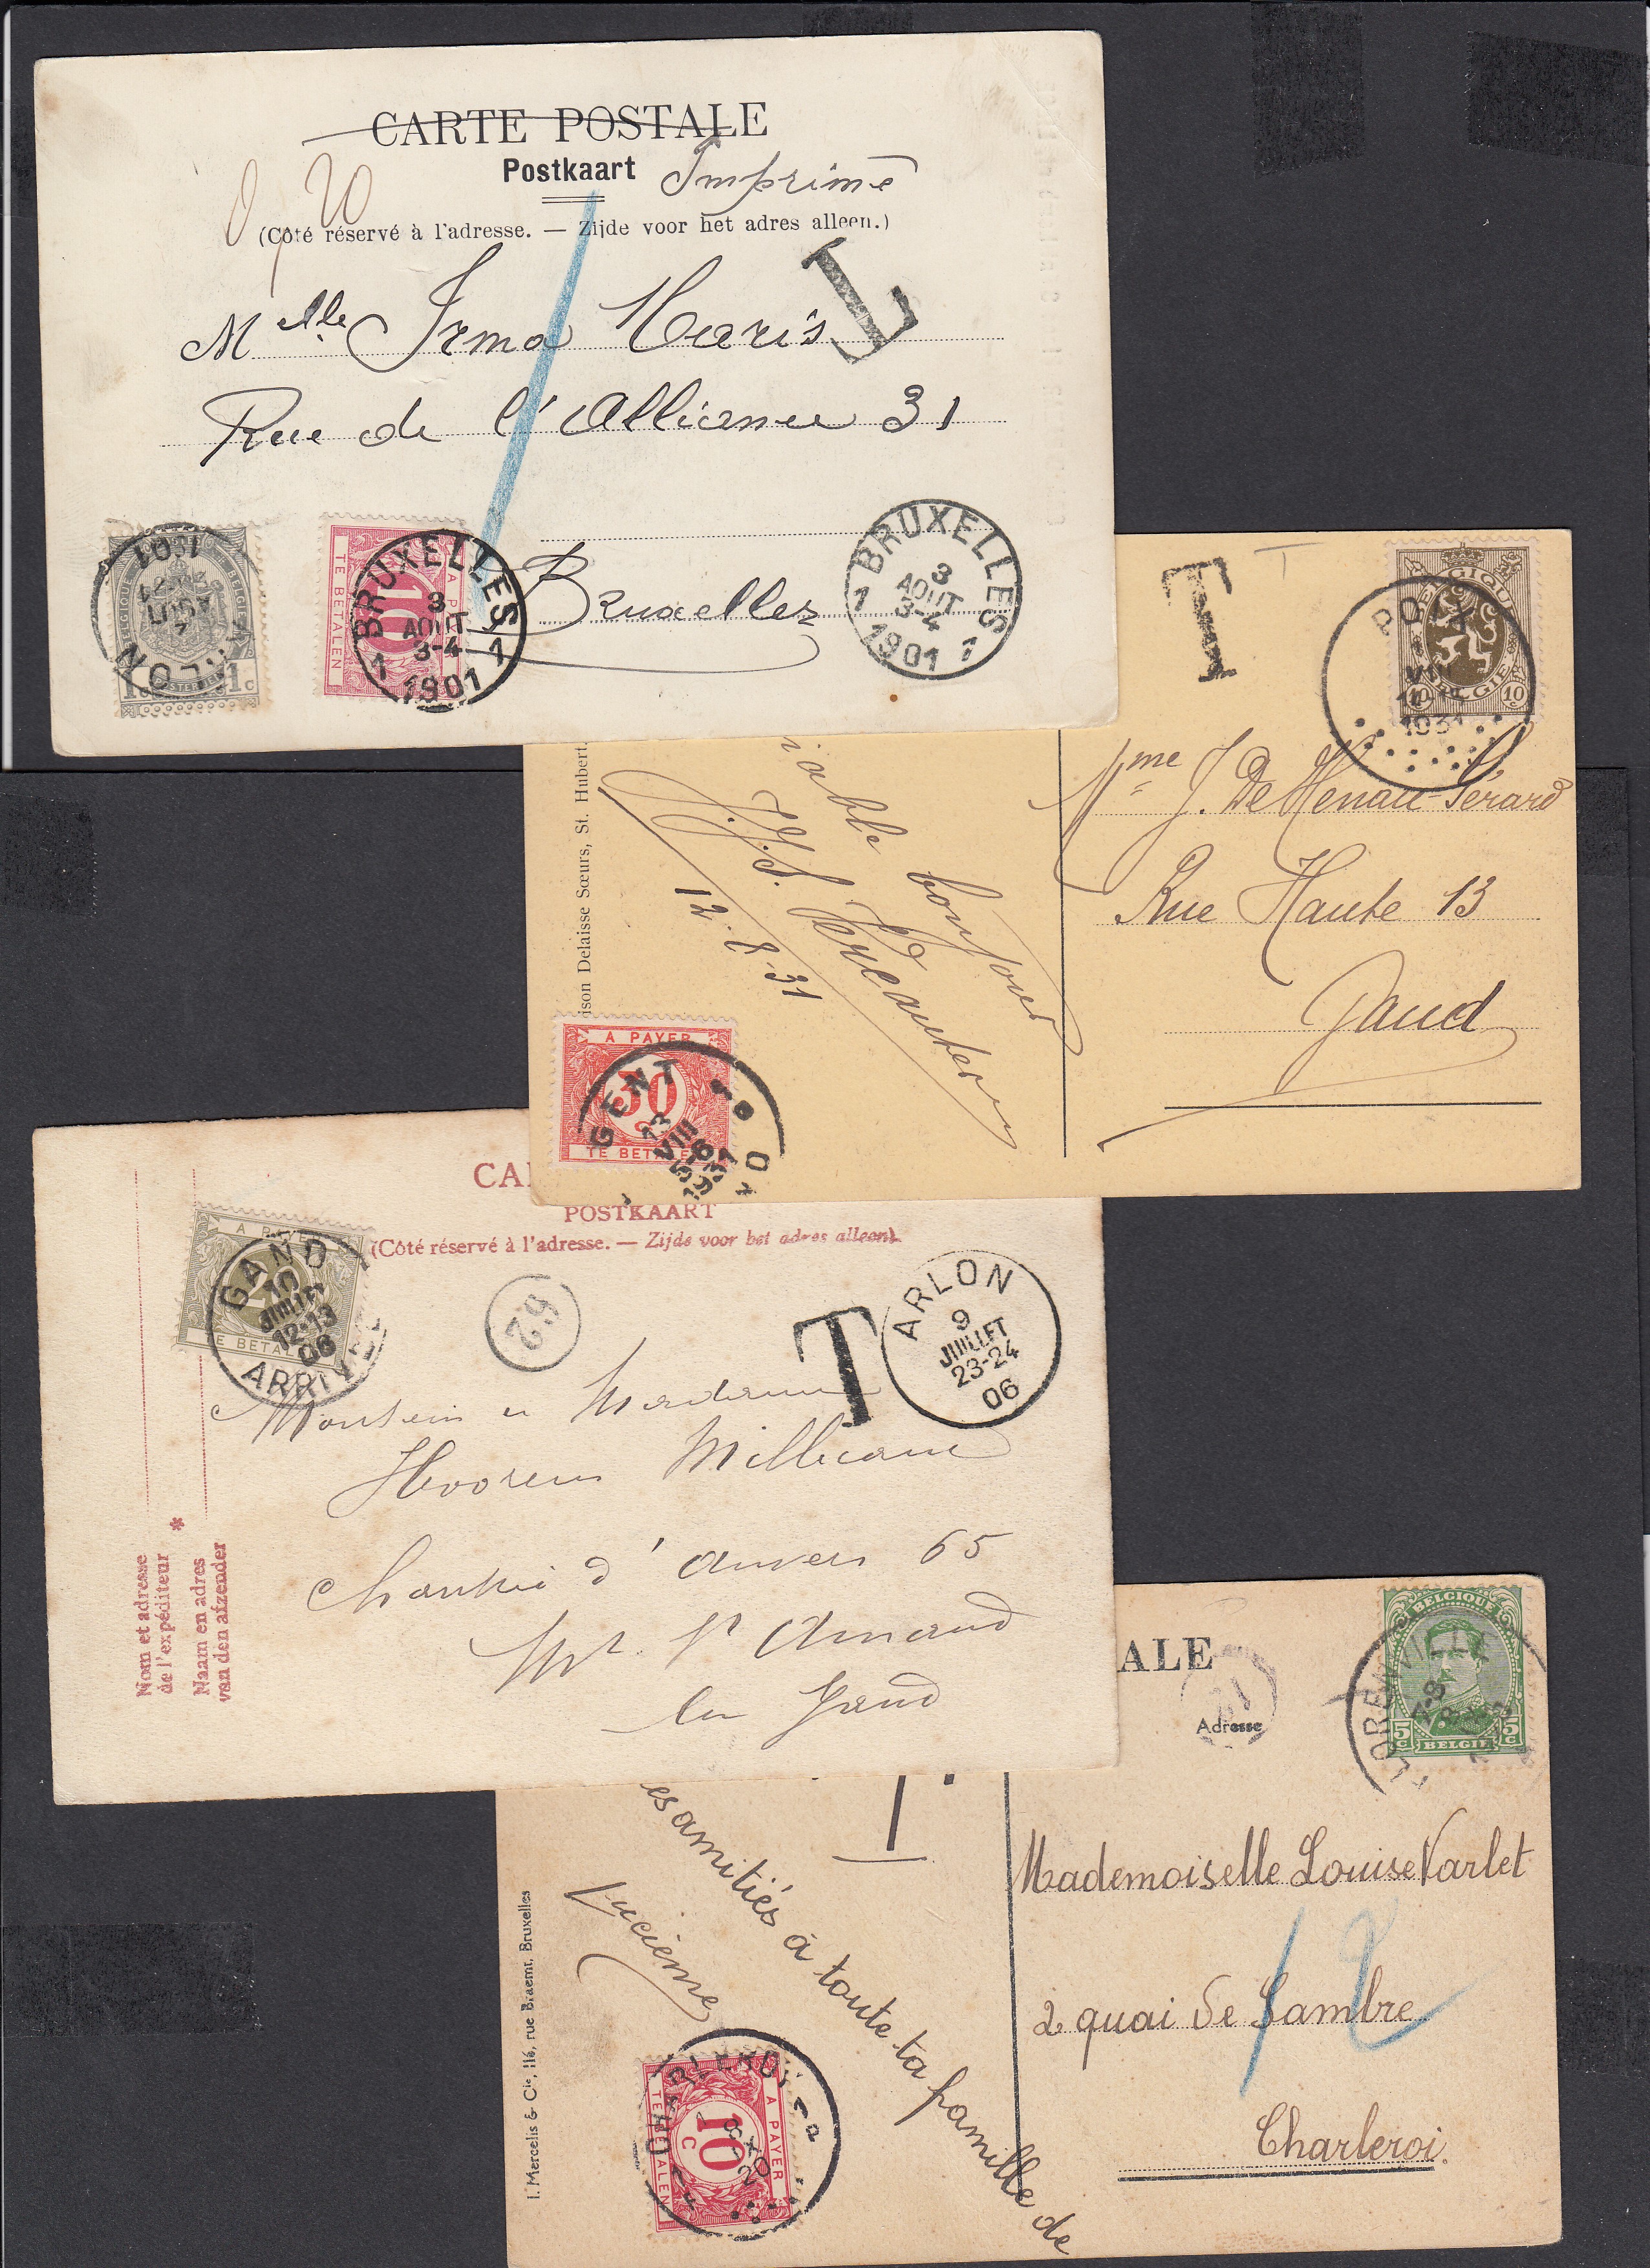 CARTE POSTALE
Postkaart Imprimé
0,20
(Côté réservé à l'adresse. — Zijde voor het adres alleen.)
T
Melle Irma Maris
Rue de l'Alliance 31
Bruxelles
ARLON
AOUT
1901
BELGIQUE
1c 1c
A PAYER
10
TE BETALEN
BRUXELLES
3
AOUT
3-4
1 1901 1
BRUXELLES
3
AOUT
3-4
1 1901 1
T
BELGIQUE
BELGIE
10c 10c
POIX
1931
ison Delaisse Sœurs, St. Hubert.
iable bonjour
12-8-31
Mme J. De Henau-Gérard
Rue Haute 13
Gand
A PAYER
30
TE BETALEN
GENT
13
VIII
5-6
1931
CA
POSTKAART
(Côté réservé à l'adresse. — Zijde voor het adres alleen).
A PAYER
20
TE BETALEN
GAND
10
JUILLET
12-13
06
ARRIVEE
62
T
ARLON
9
JUILLET
23-24
06
Monsieur et Madame
Hoorens Millecam
Chaussée d'Anvers 65
Mt St Amand
lez Gand
Nom et adresse
de l'expéditeur
*
Naam en adres
van den afzender
ALE
Adresse
BELGIQUE
5c 5c
BELGIË
FLORENVILLE
7-8
T.
es amitiés à toute ta famille de
Lucienne
I. Mercelis & Cie, 116, rue Braemt, Bruxelles
Mademoiselle Louise Varlet
2 quai de Sambre
12
Charleroi.
A PAYER
10
C
TE BETALEN
CHARLEROY
20